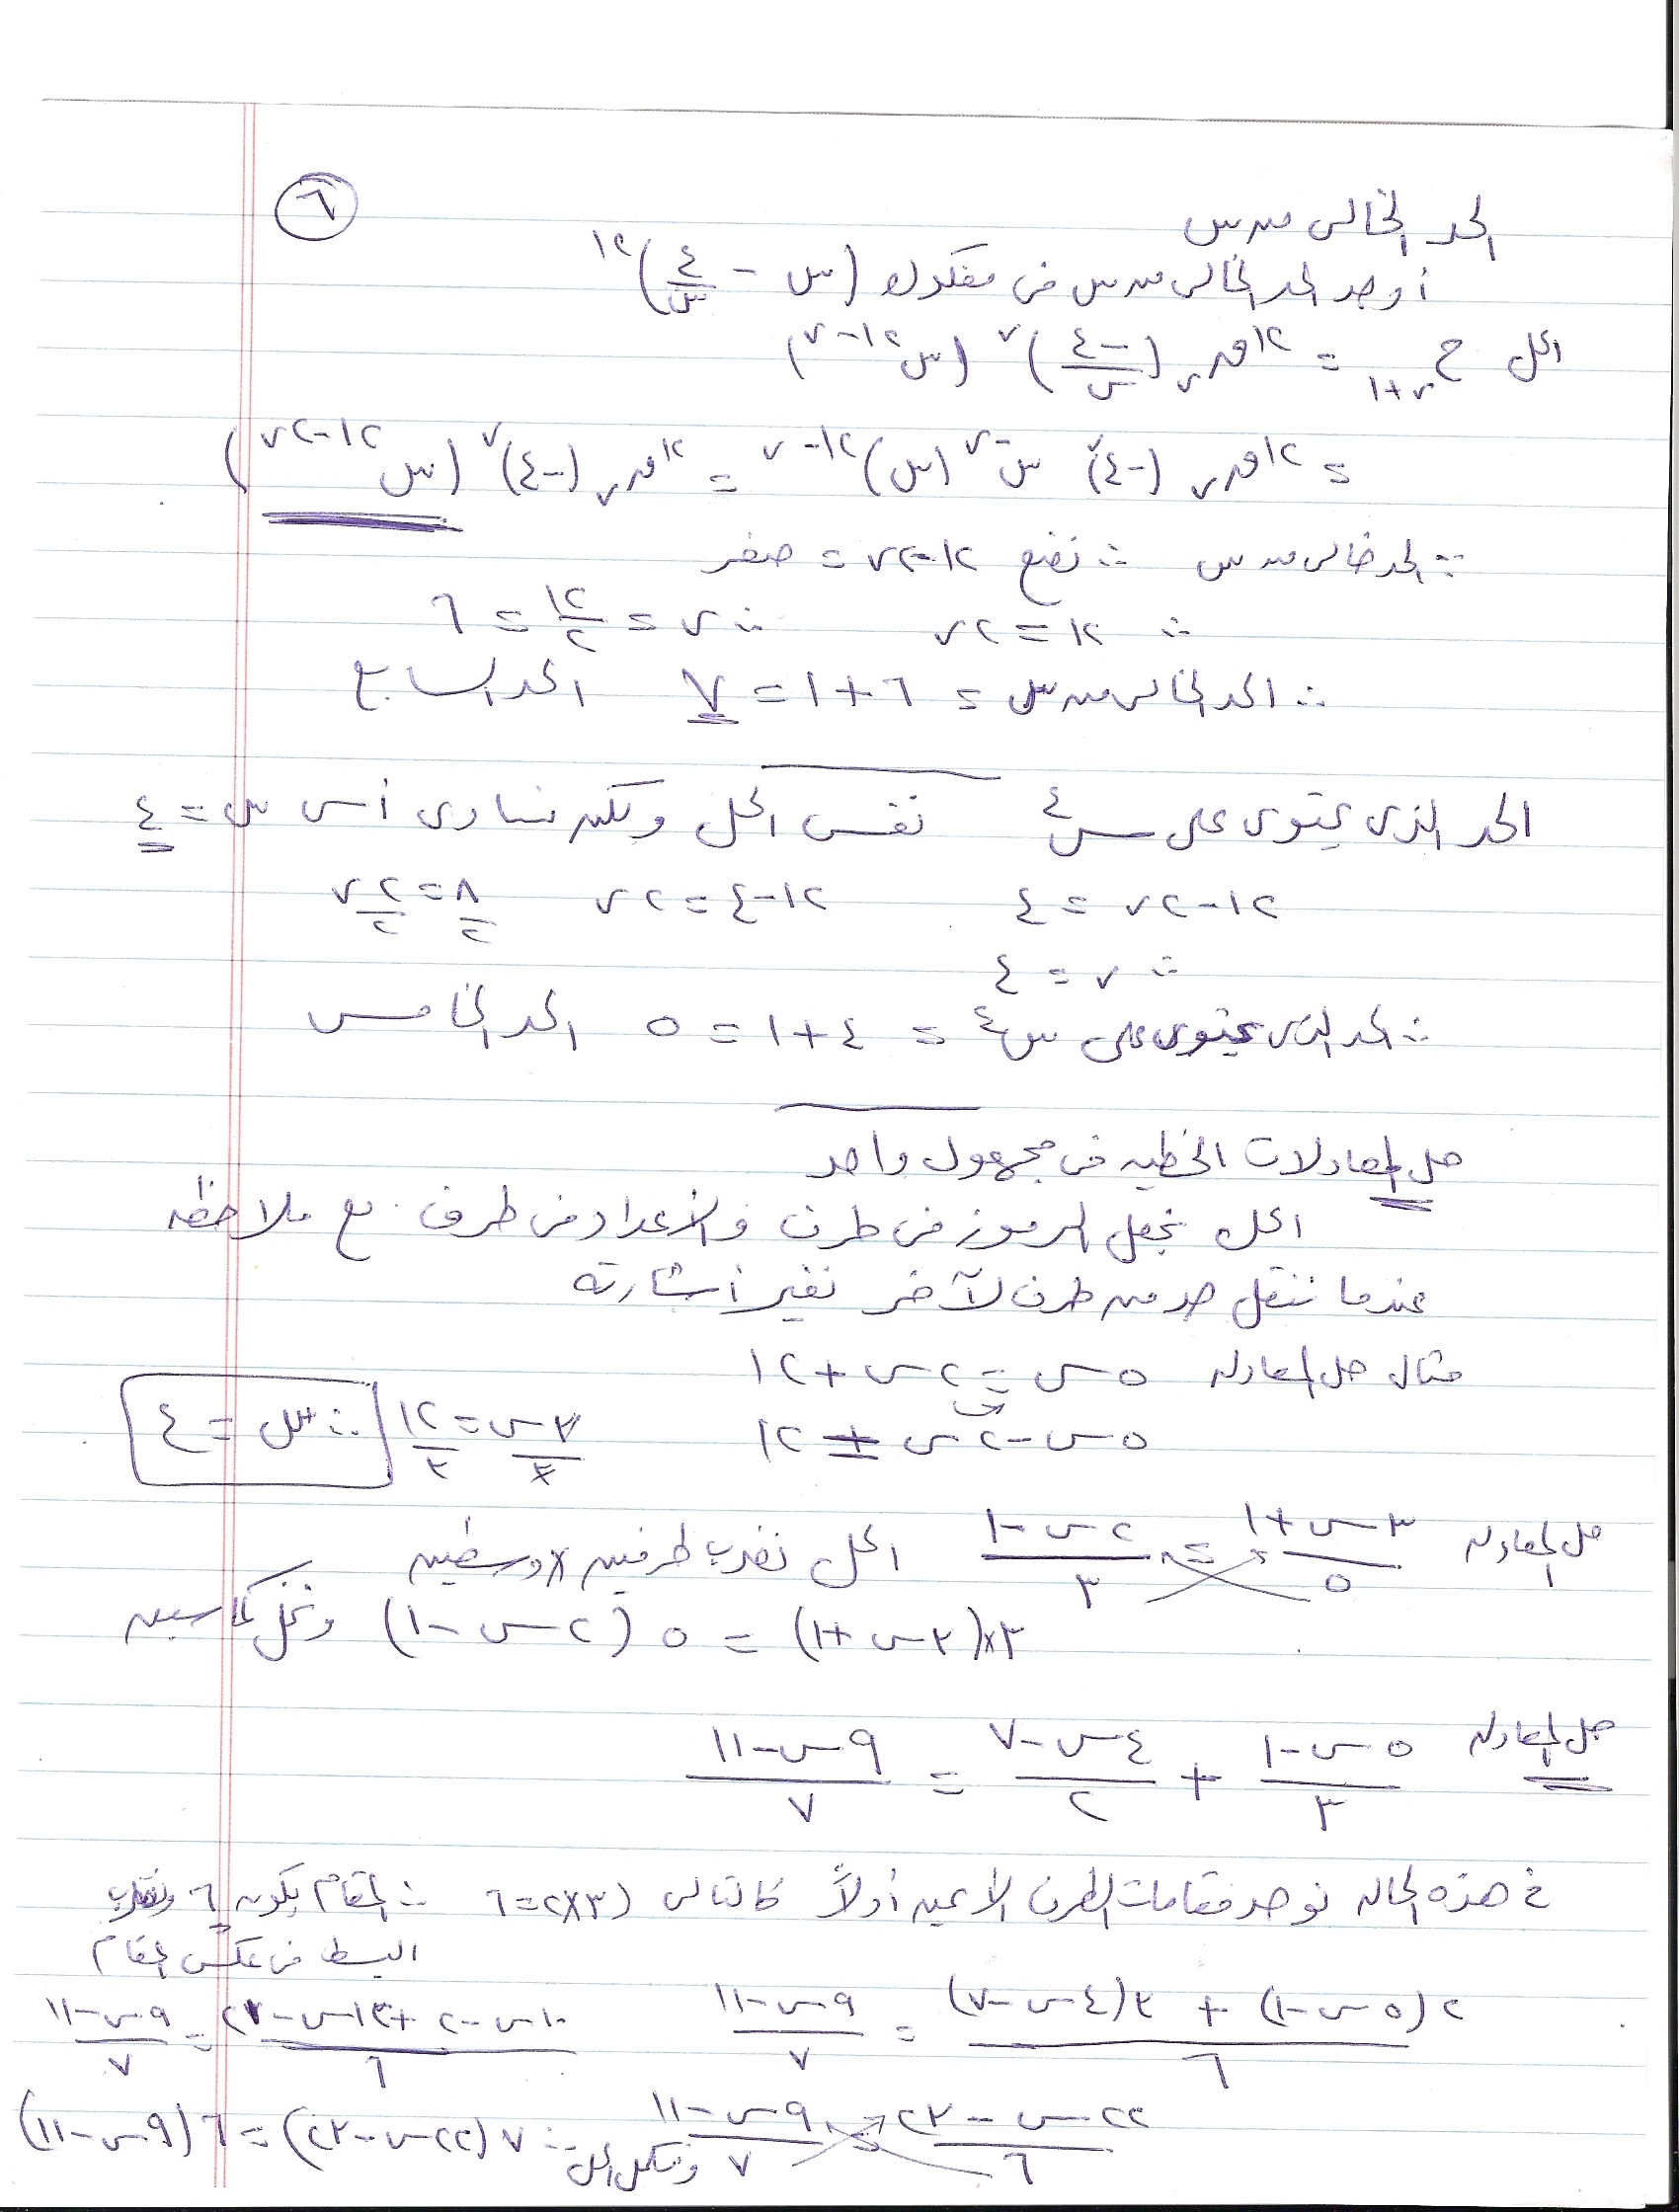 ٦
الحد الخالى من س
أوجد الحد الخالى من س فى مفكوك (س - ٤/س)^١٢
الحل ح ر+١ = ١٢ق ر (-٤/س)^ر (س^١٢-ر)
= ١٢ق ر (-٤)^ر س^-ر (س)^١٢-ر = ١٢ق ر (-٤)^ر (س^١٢-٢ر)
∵ الحد خالى من س ∴ نضع ١٢-٢ر = صفر
∴ ١٢ = ٢ر ∴ ر = ١٢/٢ = ٦
∴ الحد الخالى من س = ٦+١ = ٧ الحد السابع
الحد الذى يحتوى على س^٤ نفس الحل ولكن نساوى أس س = ٤
١٢-٢ر = ٤ ١٢-٤ = ٢ر ٨/٢ = ٢ر/٢
∴ ر = ٤
∴ الحد الذى يحتوى على س^٤ = ٤+١ = ٥ الحد الخامس
حل المعادلات الخطيه فى مجهول واحد
الحل نجعل الرموز فى طرف والأعداد فى طرف مع ملاحظه
عندما ننقل حد من طرف لآخر نغير أشارته
مثال حل المعادله ٥س = ٢س + ١٢
٥س - ٢س = ١٢ ٣س/٣ = ١٢/٣ ∴ س = ٤
حل المعادله (٣س+١)/٥ = (٢س-١)/٣ الحل نضرب طرفين × وسطين
٣×(٣س+١) = ٥(٢س-١) ونحل كما سبق
حل المعادله (٥س-١)/٣ + (٤س-٧)/٢ = (٩س-١١)/٧
فى هذه الحاله نوحد مقامات الطرف الأيمن أولاً كالتالى (٣×٢=٦ ∴ المقام يكون ٦ ونضرب
البسط فى عكس المقام
(٢(٥س-١) + ٣(٤س-٧))/٦ = (٩س-١١)/٧ (١٠س-٢+١٢س-٢١)/٦ = (٩س-١١)/٧
(٢٢س-٢٣)/٦ = (٩س-١١)/٧ ∴ ٧(٢٢س-٢٣) = ٦(٩س-١١)
ونكمل الحل